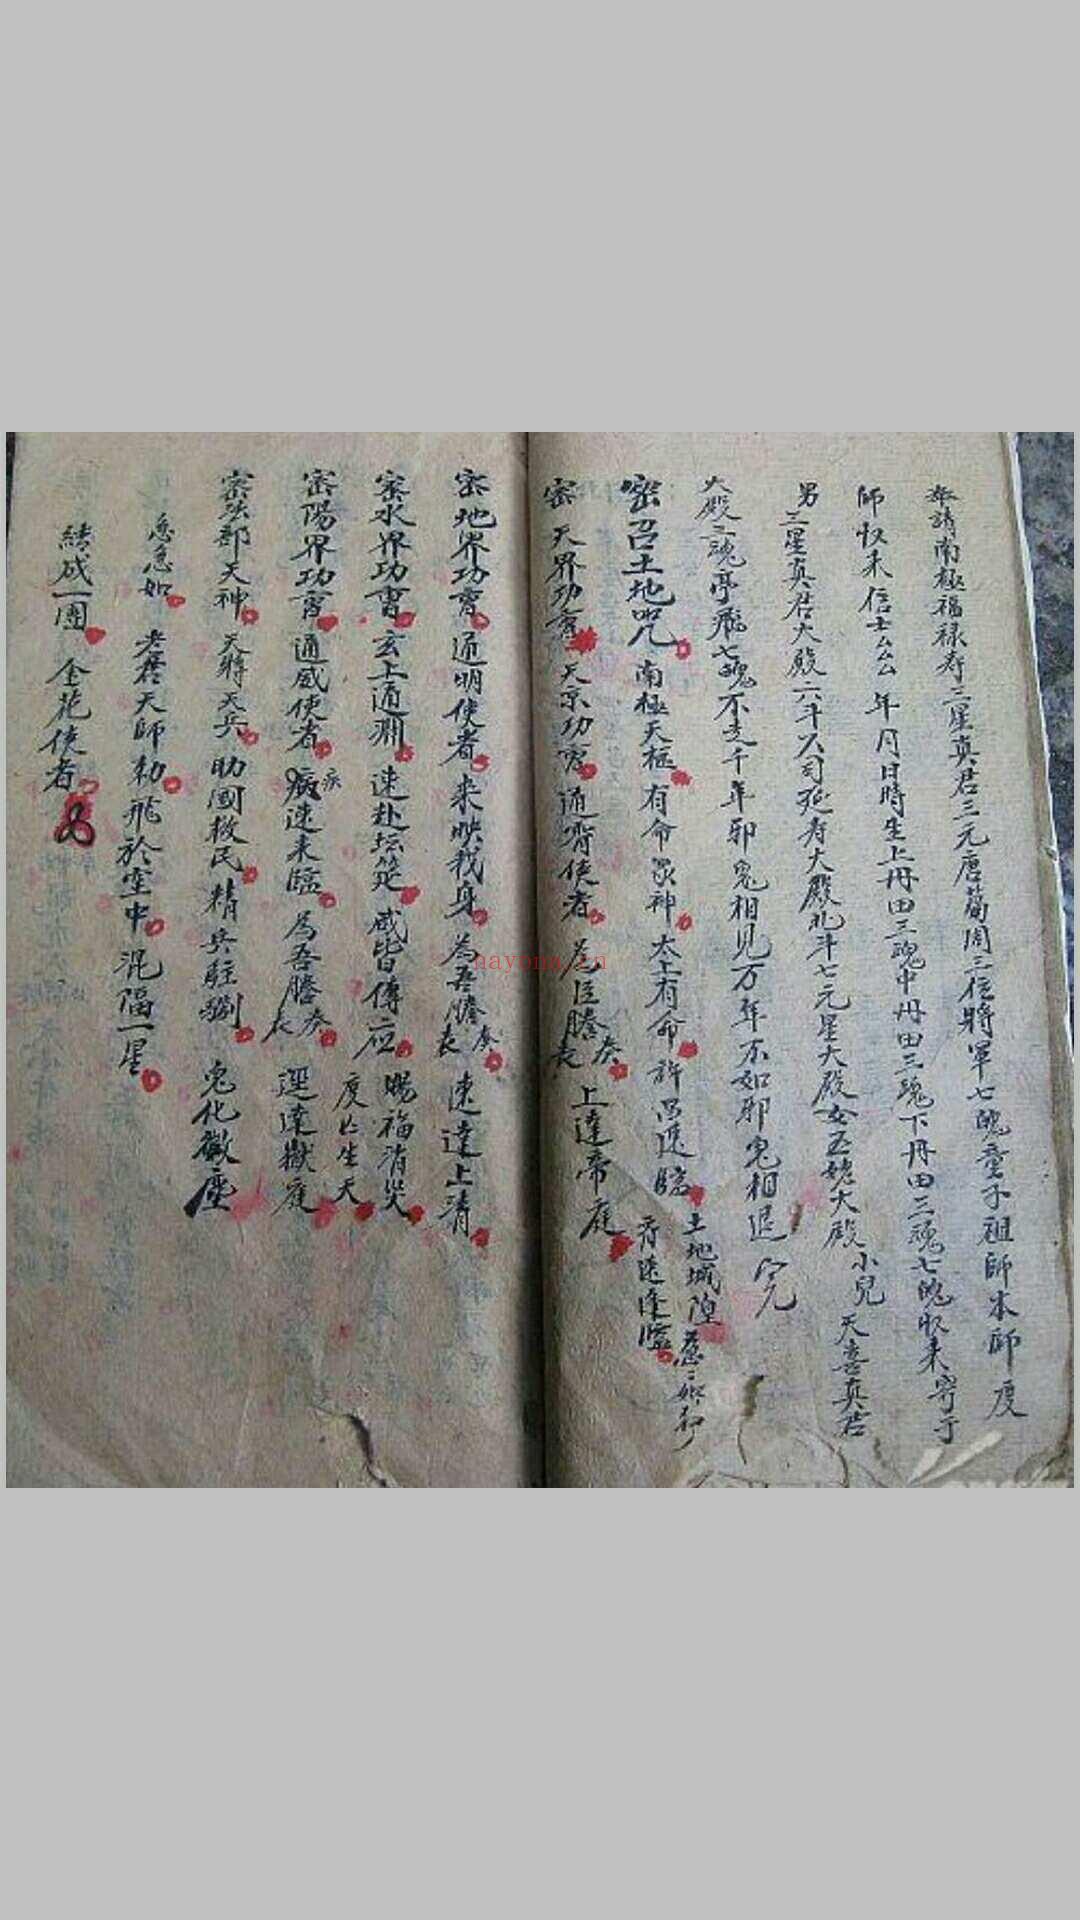 奉請南極福禄寿三星真君三元唐葛周三位將軍七魄童子祖師本師度
師收来信士厶厶年月日時生上丹田三魂中丹田三魂下丹田三魂七魄收来寄于
男三星真君大殿六十人司延寿大殿北斗七元星大殿女王姥大殿小兒天喜真君
大殿三魂亭飛七魄不走千年邪鬼相見万年不如邪鬼相退完
密召土地咒南極天樞有命眾神太上有命許召速臨土地城隍急二如勅
有速逢臨
密天界功曹天京功曹通霄使者為臣謄奏表上達帝庭
密地界功曹通明使者来映我身為吾謄奏表速達上清
密水界功曹玄上通淵速赴坛筵咸皆傳应賜福消災
度亡生天
密陽界功曹通威使者疾速来臨為吾謄奏表逕達獄庭
密兵部天神天將天兵助國救民精兵駐劄鬼化微塵
急急如老君天師勅飛於空中混陽一星
結成一團金花使者
nayona.cn